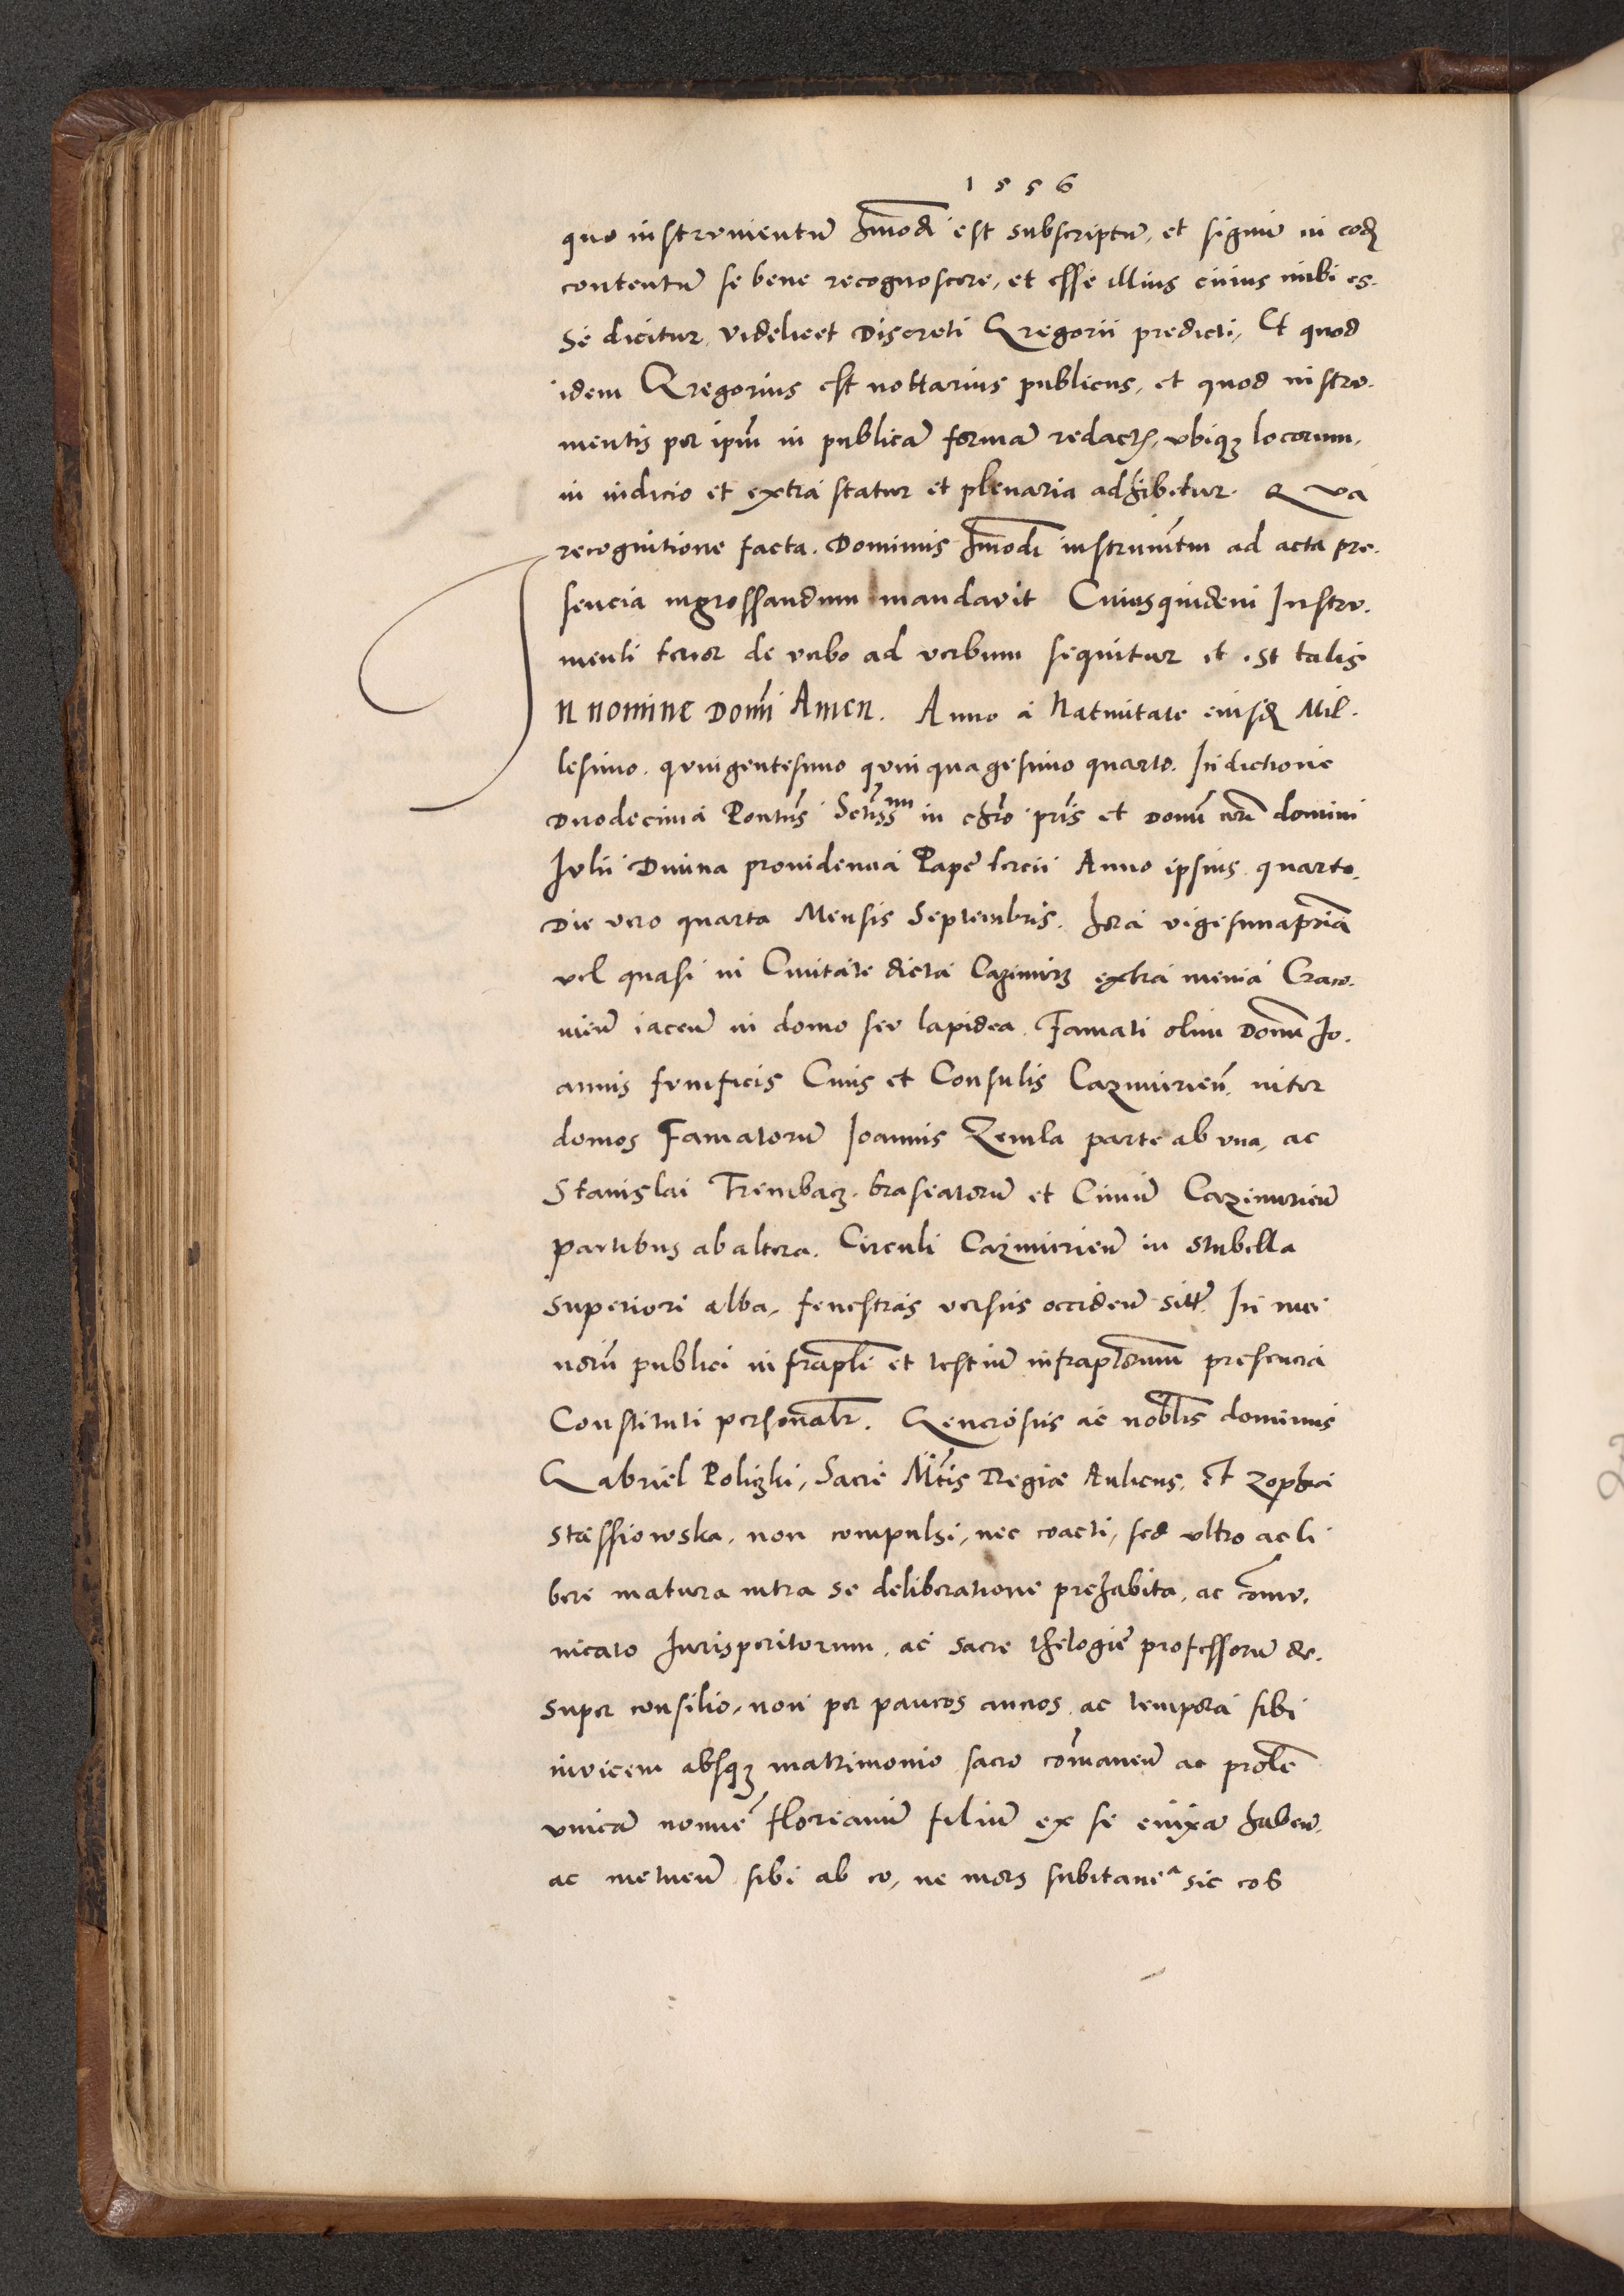 1556
quo instrumentū hmōdi est subscriptū, et signū in eod
contentū se bene recognoscere, et esse illius cuius inibi es-
se dicitur, videlicet Discreti Gregorii predicti, Et quod
idem Gregorius est nottarius publicus, et quod instru-
mentis per ipm̄ in publicā formā redact, vbiqȝ locorum,
in iudicio et extra statur et plenaria adhibetur. Qua
recognitione facta. Dominus hmōdi instrumn̄tm ad acta pre-
sencia ingrossandum mandavit Cuiusquidem Instru-
menti tenor de verbo ad verbum sequitur et est talis
In nomine Domī Amen. Anno a Natiuitate eiusd Mil-
lesimo. quingentesimo quinquagesimo quarto. Indictione
Duodecima Pontūs Sctissmi in chro pris et Domī nrī domini
Iulii Diuina prouidencia Pape tercii Anno ipsius quarto.
Die vero quarta Mensis Septembris. hora vigesimaprīa
vel quasi in Ciuitate dicta Cazimirz extra menia Craco-
uien̄ iacen̄ in domo seu lapidea. Famati olim Domī Io-
annis funificis Ciuis et Consulis Cazimirien̄. inter
domos Famatorū Ioannis Zemla parte ab vna, ac
Stanislai Trembacz. braseatorū et Ciuiū Cazimirien̄
partibus ab altera. Circuli Cazimirien̄ in stubella
superiori alba, fenestras versus occiden̄ sitt. In mei
norīj publici infrapti et testiū infraptorum presencia
Constituti personalr. Generosus ac noblis dominus
Gabriel Policzki, Sacre Mtis Regiæ Aulicus, et Zophia
Stæssiowska, non compulsi, nec coacti, sed vltro ac li
bere matura intra se deliberatione prehabita, ac comu-
nicato Iurisperitorum, ac sacre theologie professorū de-
super consilio, non per paucos annos ac tempora sibi
inuicem absqȝ matrimonio sacro cōmanen̄ ac prole
vnicā nomīe Floreanū filiū ex se enixa haben̄.
ac metuen̄ sibi ab eo, ne mors subitanea sic eos